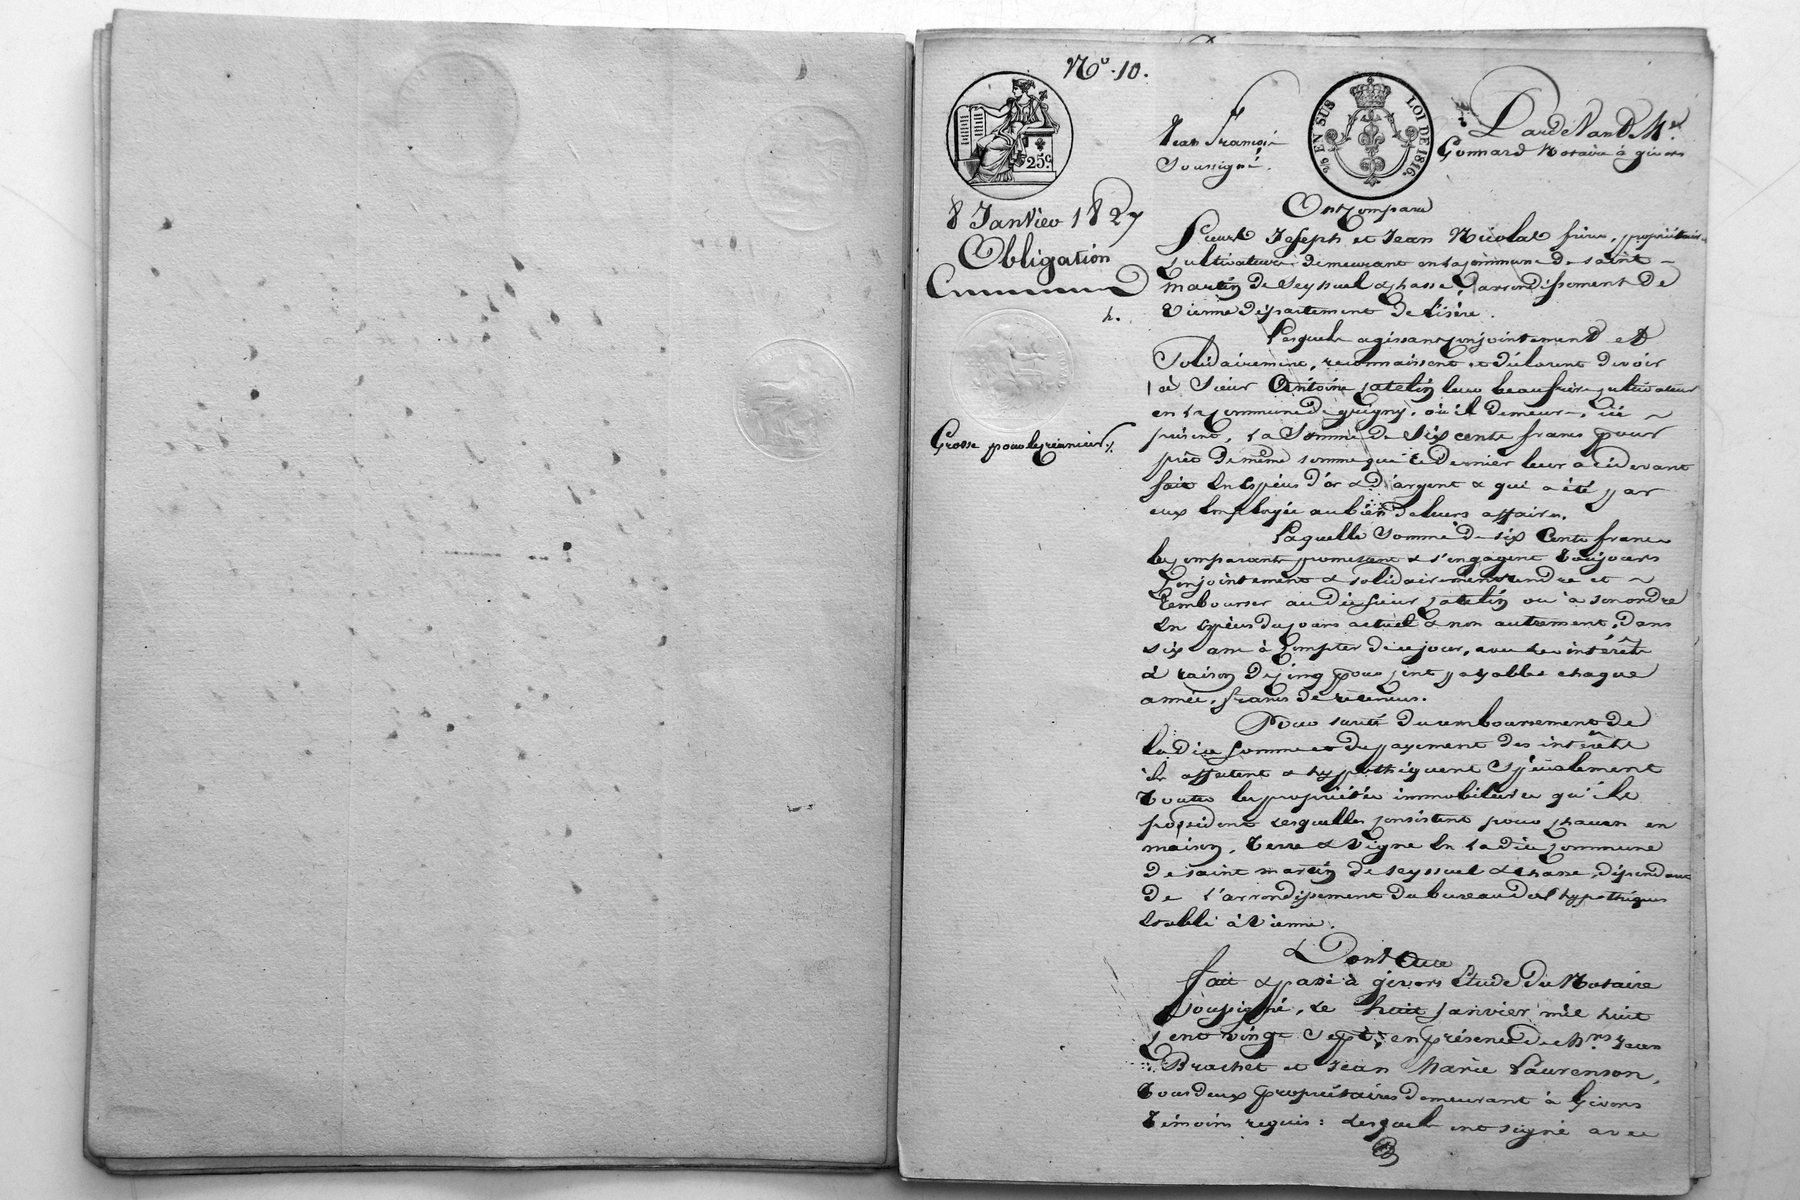 No. 10.
25c.
2/5 EN SUS LOI DE 1816.
Pardevant Me.
Jean François
Gonnard Notaire à givors
Soussigné.
8 Janvier 1827
Obligation
Grosse pour le créancier
Ont Comparu
Sieurs Joseph et Jean Nicolas frères, propriétaires
cultivateurs demeurant en la commune de saint
martin de Seyssuel & chasse, arrondissement de
Vienne département de l'isère.
Lesquels agissant conjointement et
Solidairement, reconnaissent et déclarent devoir
à Sieur Antoine leur beaufrère cultivateur
en la commune de grigny, où il demeure, ici
présent, La Somme de Six cents francs pour
prêt de même somme que ce dernier leur a cidevant
fait En Espèces d'or & d'argent & qui a été par
eux Employée au bien de leurs affaires.
Laquelle Somme de six Cents francs
les comparants promettent & s'engagent toujours
Conjointement & solidairement rendre et
rembourser audit sieur ou à son ordre
En Espèces du jours actuel & non autrement, dans
six ans à Compter de ce jour, avec les intérêts
à raison de cinq pour cent payables chaque
année, francs de retenues.
Pour sureté du remboursement de
la dite somme et du payement des intérêts
ils affectent & hypothèquent Spécialement
toutes les propriétés immobilières qu'ils
possèdent lesquelles consistent pour chacun en
maison, terre & vigne En la dite commune
de saint martin de seyssuel & chasse, dépendant
de l'arrondissement du bureau des hypothèques
Etabli à Vienne.
Dont Acte
fait & passé à givors Etude du Notaire
soussigné, Le huit janvier mil huit
cent vingt Sept, en présence de Mrs Jean
Brachet et Jean Marie Laurenson,
tous deux propriétaires demeurant à Givors
témoins requis: Lesquels ont signé avec